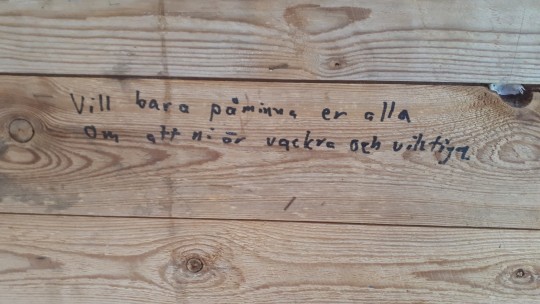 Vill bara påminna er alla
Om att ni är vackra och viktiga